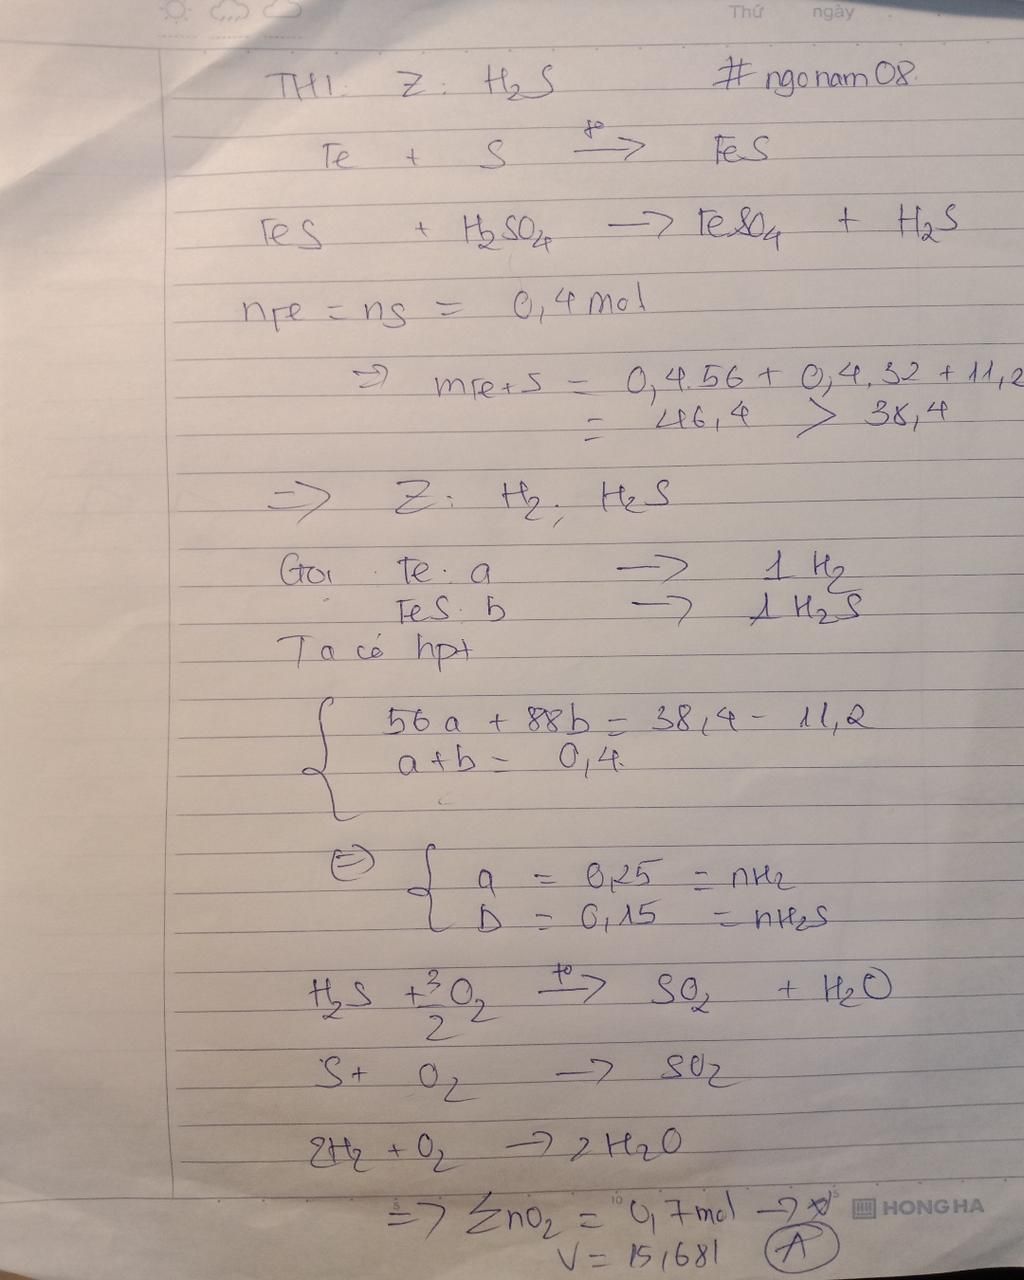 Thứ ngày
TH1: Z: H₂S #ngonam08
Fe + S t° → FeS
FeS + H₂SO₄ → FeSO₄ + H₂S
nFe = nS = 0,4 mol
=> mFe+S = 0,4.56 + 0,4.32 + 11,2
= 46,4 > 38,4
=> Z: H₂; H₂S
Gọi Fe: a → 1 H₂
FeS: b → 1 H₂S
Ta có hpt
56a + 88b = 38,4 - 11,2
a + b = 0,4.
(=) { a = 0,25 = nH₂
b = 0,15 = nH₂S
H₂S + 3/2 O₂ t° → SO₂ + H₂O
S + O₂ → SO₂
2H₂ + O₂ → 2H₂O
=> ΣnO₂ = 0,7mol → HONG HA
V = 15,68l A